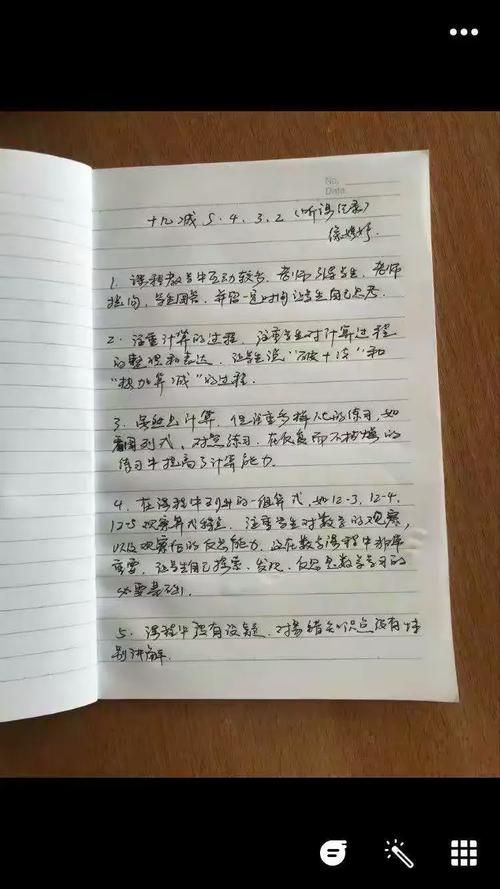 No.
Date
十几减5、4、3、2 (听课记录)
徐婷婷
1、课程教学中互动较多,老师引导学生,老师
提问,学生回答,并留一定时间让学生自己思考.
2、注重计算的过程,注重学生对计算过程
的整理和表达,让学生说"破十法"和
"想加算减"的过程.
3、虽然上计算,但注重多样化的练习,如
看图列式,对照练习,在反复而不枯燥的
练习中提高了计算能力.
4、在课程中列出的一组算式,如12-3, 12-4,
12-5 观察算式特点,注重学生对数学的观察,
以及观察后的反思能力,这在数学课程中非常
重要,让学生自己探索、发现、反思是数学学习的
必要基础.
5、课程中没有设疑,对易错知识点没有特
别讲解.